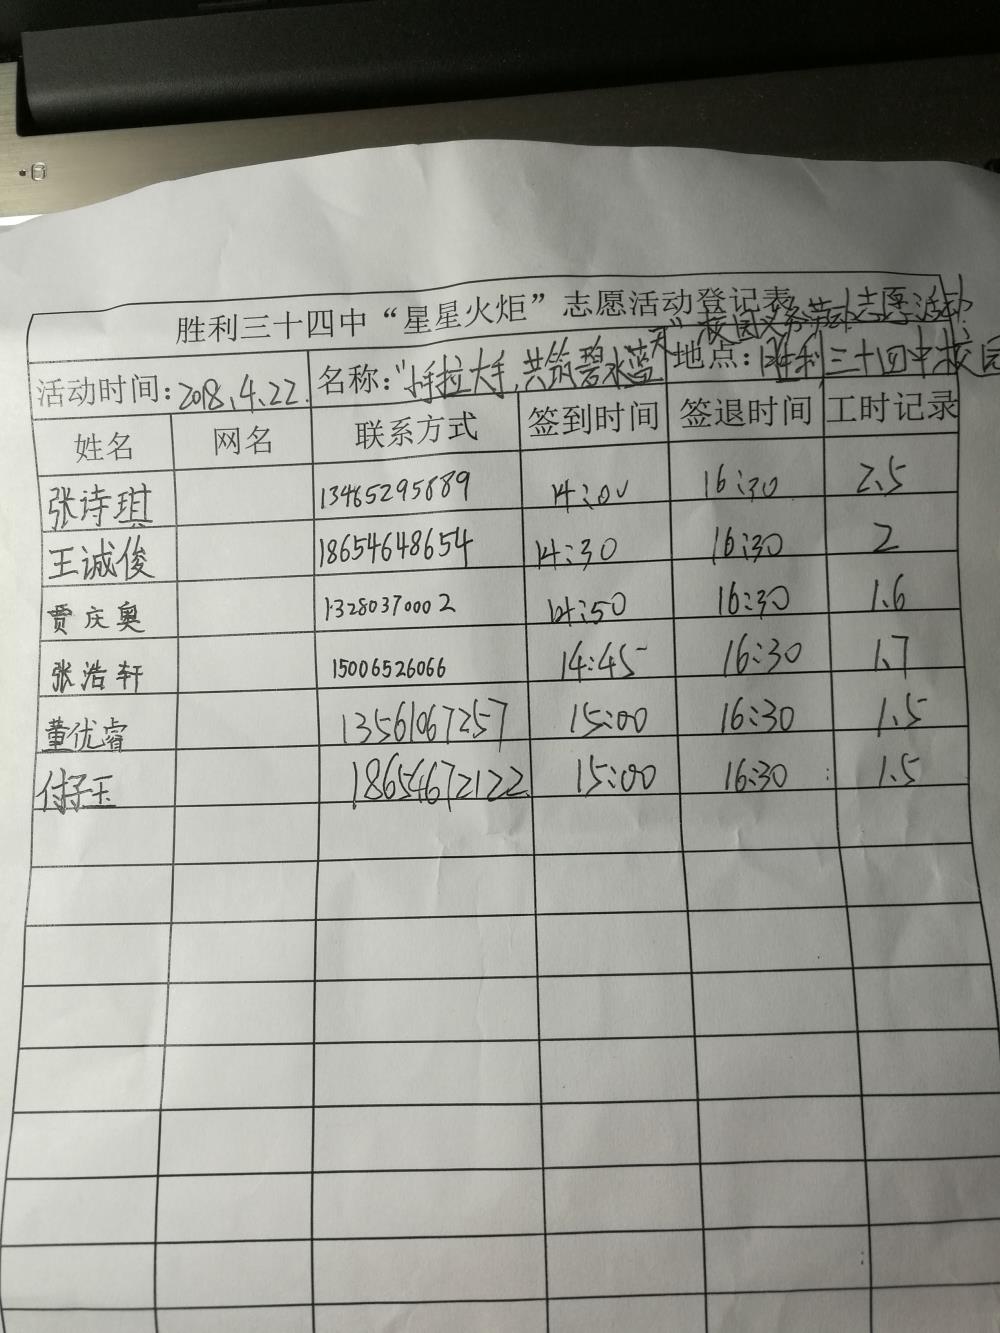 胜利三十四中“星星火炬”志愿活动登记表
活动时间:2018.4.22. 名称:“小手拉大手,共筑碧水蓝天”校园义务劳动志愿活动 地点:胜利三十四中校园
姓名 网名 联系方式 签到时间 签退时间 工时记录
张诗琪 13465295889 14:00 16:30 2.5
王诚俊 18654648654 14:30 16:30 2
贾庆奥 13280370002 14:50 16:30 1.6
张浩轩 15006526066 14:45 16:30 1.7
董优睿 13561067257 15:00 16:30 1.5
付子玉 18654672122 15:00 16:30 1.5